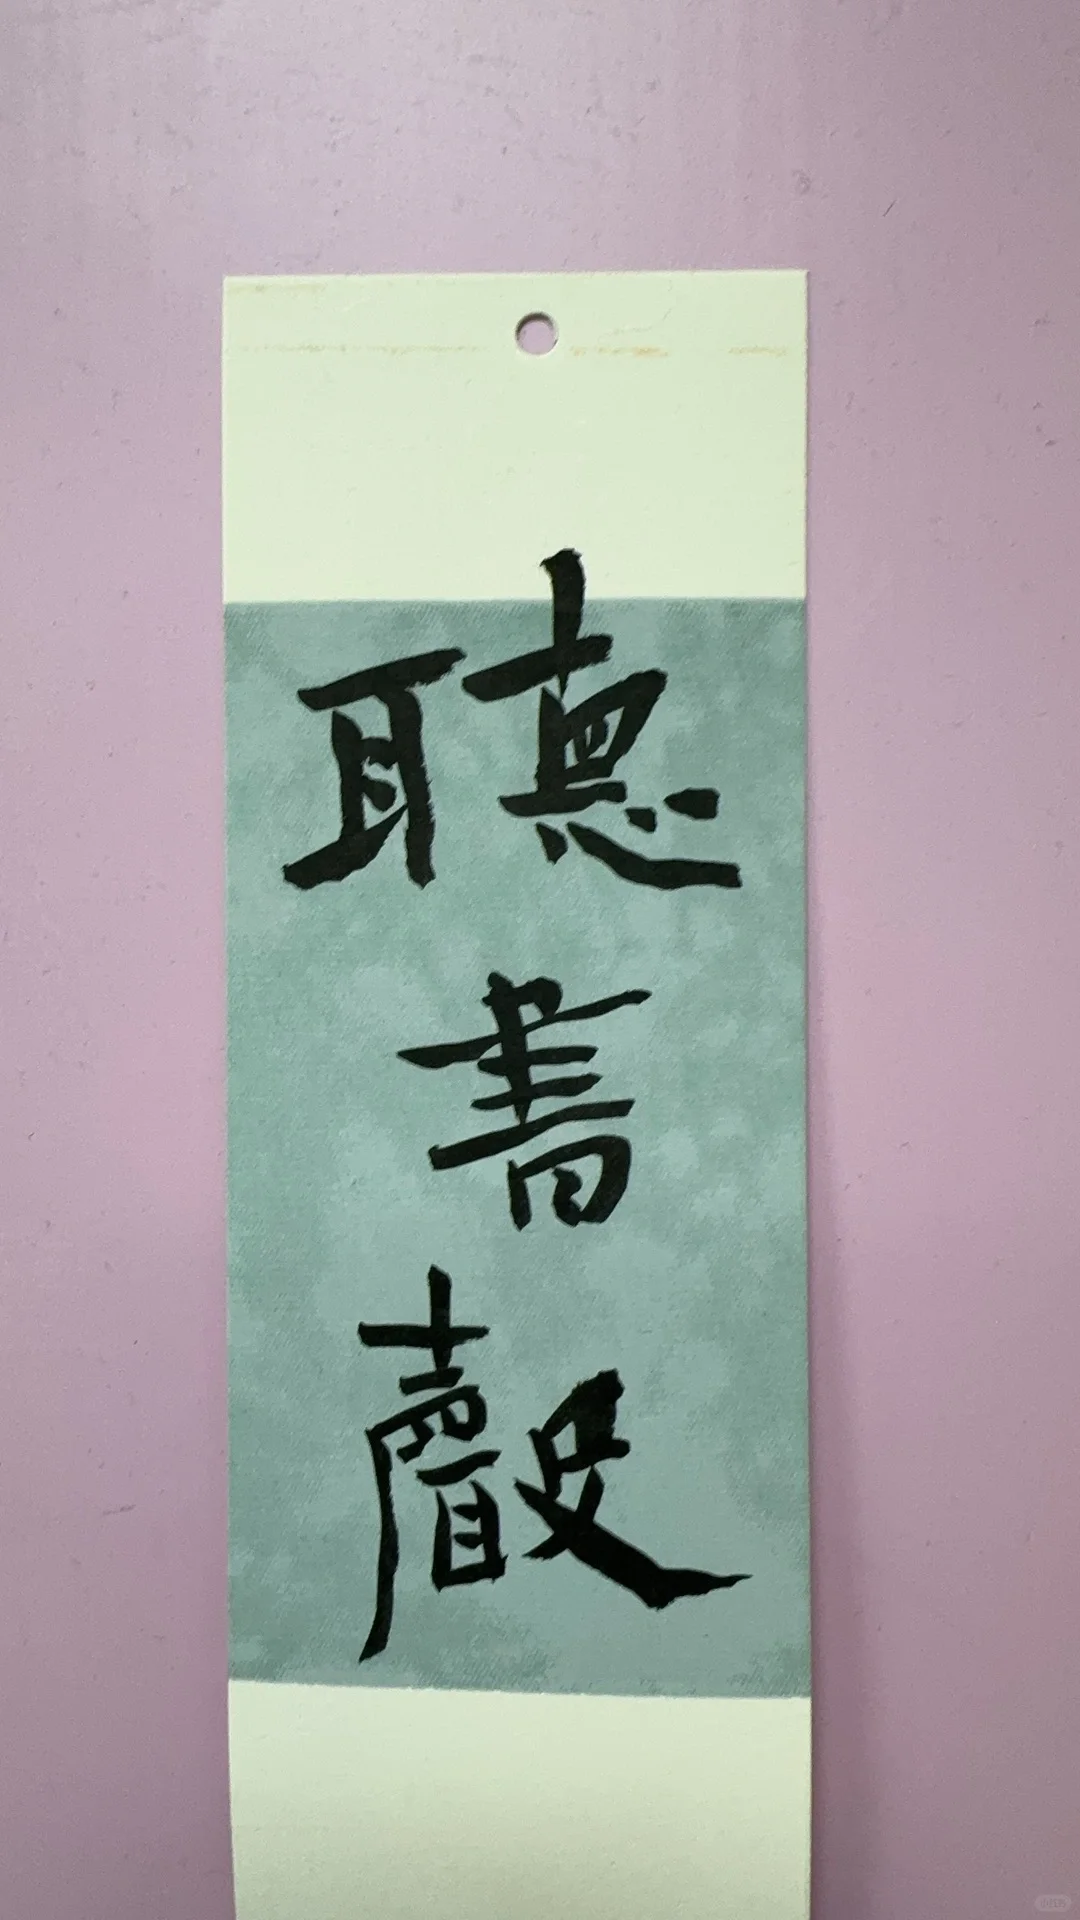 聽書聲